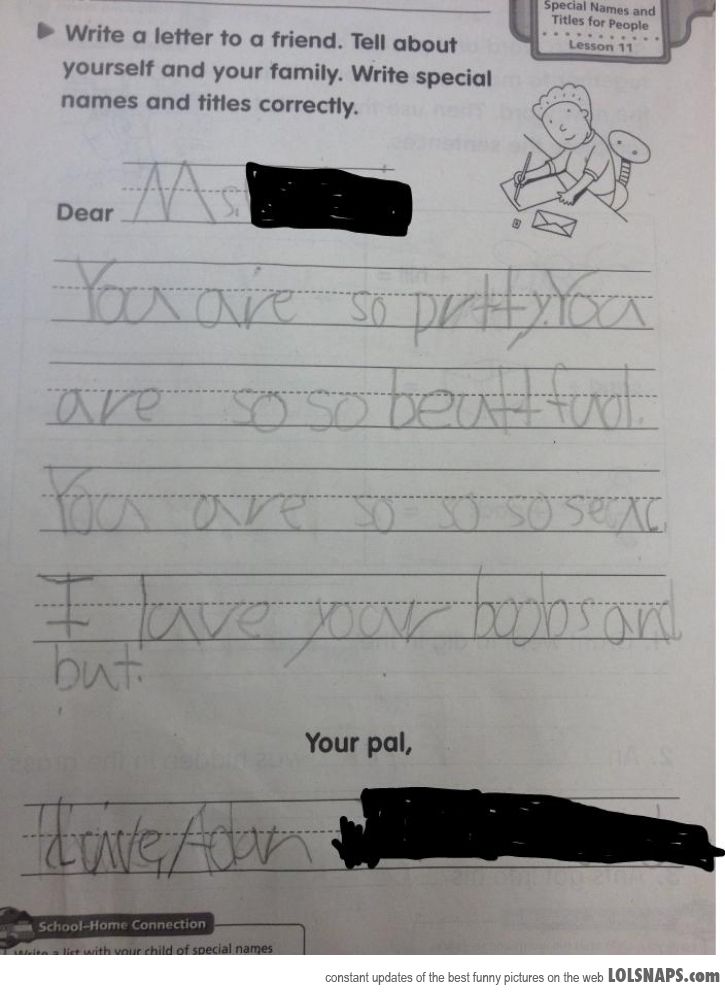 Special Names and
Titles for People
Lesson 11
Write a letter to a friend. Tell about
yourself and your family. Write special
names and titles correctly.
Dear Ms.
You are so prtty. You
are so so beuttful.
You are so so so sexc
I lave your boobs and
but.
Your pal,
Adan
School-Home Connection
Write a list with your child of special names
constant updates of the best funny pictures on the web LOLSNAPS.com